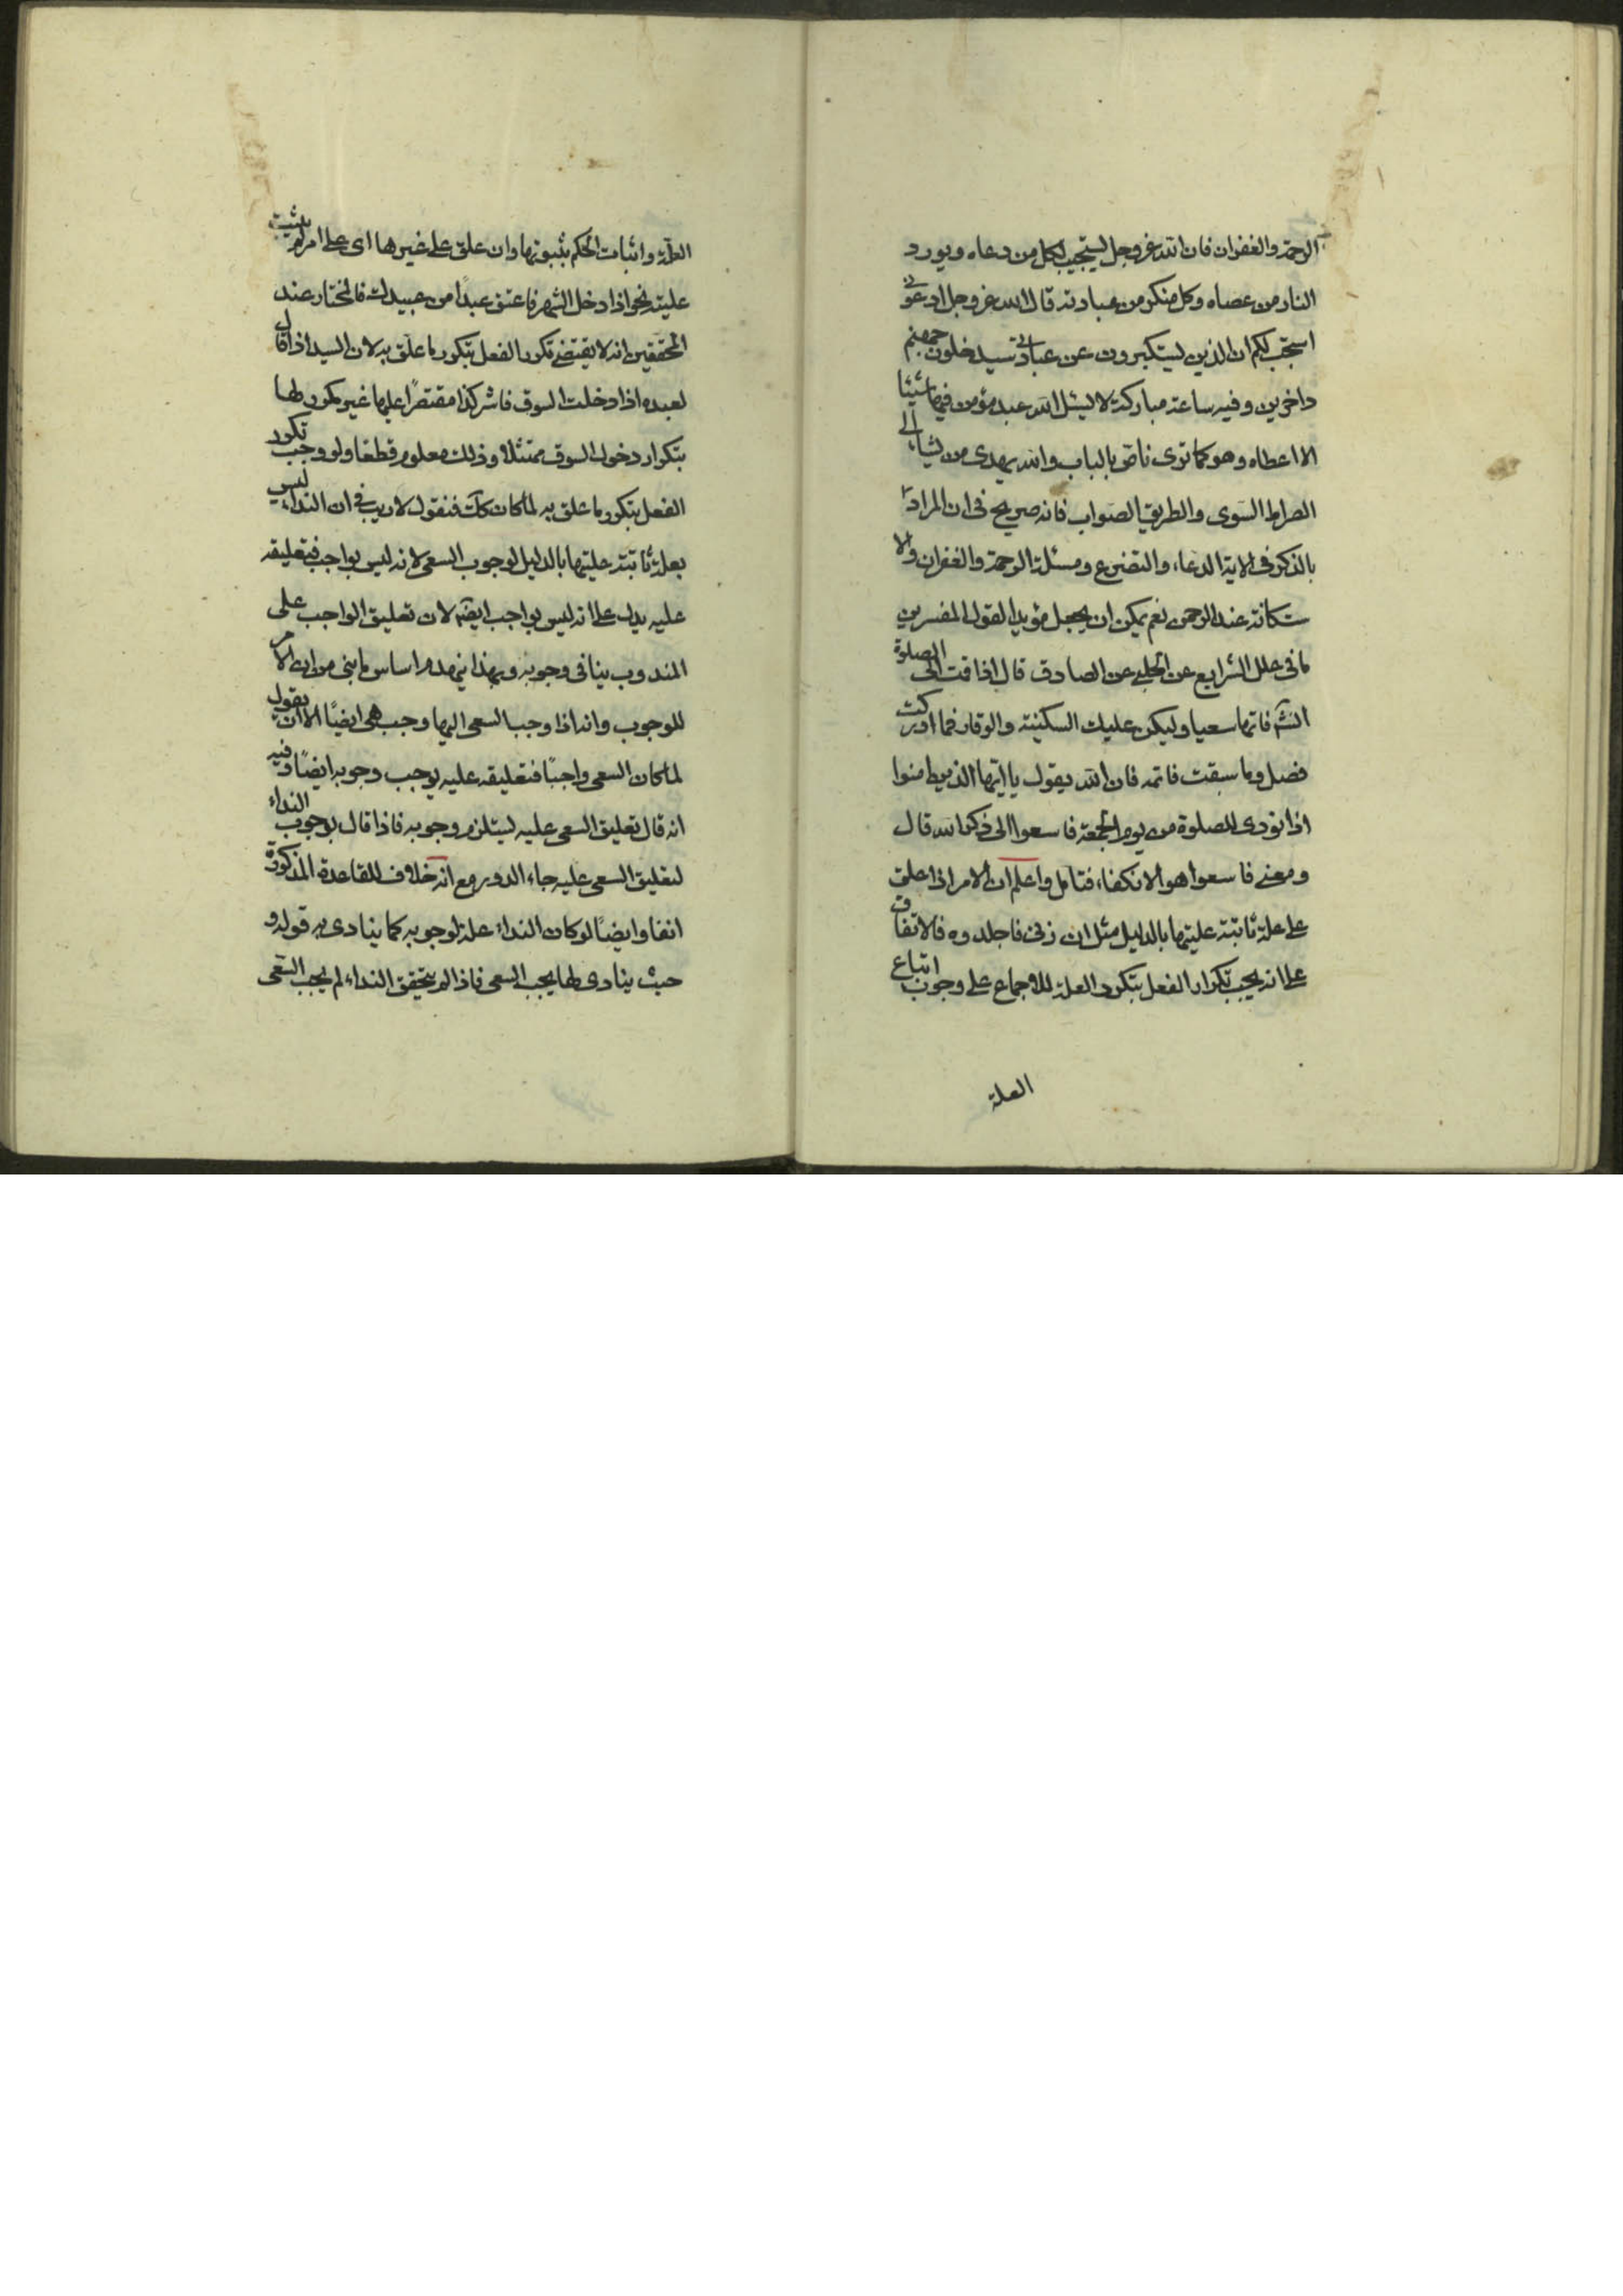 الرحمة والغفران فان الله عز وجل يستجيب لكل من دعاه ويورد
النار من عصاه وكل متكبر من عبادته قال الله عز وجل ادعونى
استجب لكم ان الذين يستكبرون عن عبادتى سيدخلون جهنم
داخرين وفيه ساعة مباركة لا يسئل الله عبد مؤمن فيها شيئا
الا اعطاه وهو كما ترى ناص بالباب والله يهدى من يشاء الى
الصراط السوى والطريق الصواب فانه صريح فى ان المراد
بالذكر فى الاية الدعاء والتضرع ومسئلة الرحمة والغفران والا
ستكانة عند الرحمن نعم يمكن ان يجعل مؤيدا لقول المفسرين
ما فى علل الشرايع عن الحلبى عن الصادق قال اذا قمت الى الصلوة
انشاء الله فاتها سعيا وليكن عليك السكينة والوقار فما ادركت
فصل وما سبقت فاتمه فان الله يقول يا ايها الذين امنوا
اذا نودى للصلوة من يوم الجمعة فاسعوا الى ذكر الله قال
ومعنى فاسعوا هو الانكفاء فتامل واعلم ان الامر اذا علق
على علة ثابتة عليتها بالدليل مثل ان زنى فاجلدوه فالاتفاق
على انه يجب تكرار الفعل بتكرر العلة للاجماع على وجوب اتباع
العلة
العلة واثبات الحكم بثبوتها وان علق على غيرها اى على امر لم يثبت
عليته نحو اذا دخل الشهر فاعتق عبدًا من عبيدك فالمختار عند
المحققين انه لا يقتضى تكرر الفعل بتكرر ما علق به لان السيد اذا قال
لعبده اذا دخلت السوق فاشتر كذا مقتصرًا عليها غير مكرر لها
بتكرار دخول السوق ممتثلا وذلك معلوم قطعا ولو وجب تكرر
الفعل بتكرر ما علق به لما كان كك فنقول لا ريب فى ان النداء ليس
بعلة ثابتة عليتها بالدليل لوجوب السعى لانه ليس بواجب فتعليقه
عليه يدل على انه ليس بواجب ايضا لان تعليق الواجب على
المندوب ينافى وجوبه وبهذا ينهدم اساس ما بنى من ان الامر
للوجوب وانه اذا وجب السعى اليها وجب هى ايضًا الا ان يقول
لما كان السعى واجبًا فتعليقه عليه يوجب وجوبه ايضًا وفيه
انه قال تعليق السعى عليه يستلزم وجوبه فاذا قال بوجوب النداء
لتعليق السعى عليه جاء الدور مع انه خلاف للقاعدة المذكورة
انفا وايضًا لو كان النداء علة لوجوبه كما ينادى به قوله و
حيث ينادى لها يجب السعى فاذا لم يتحقق النداء لم يجب السعى